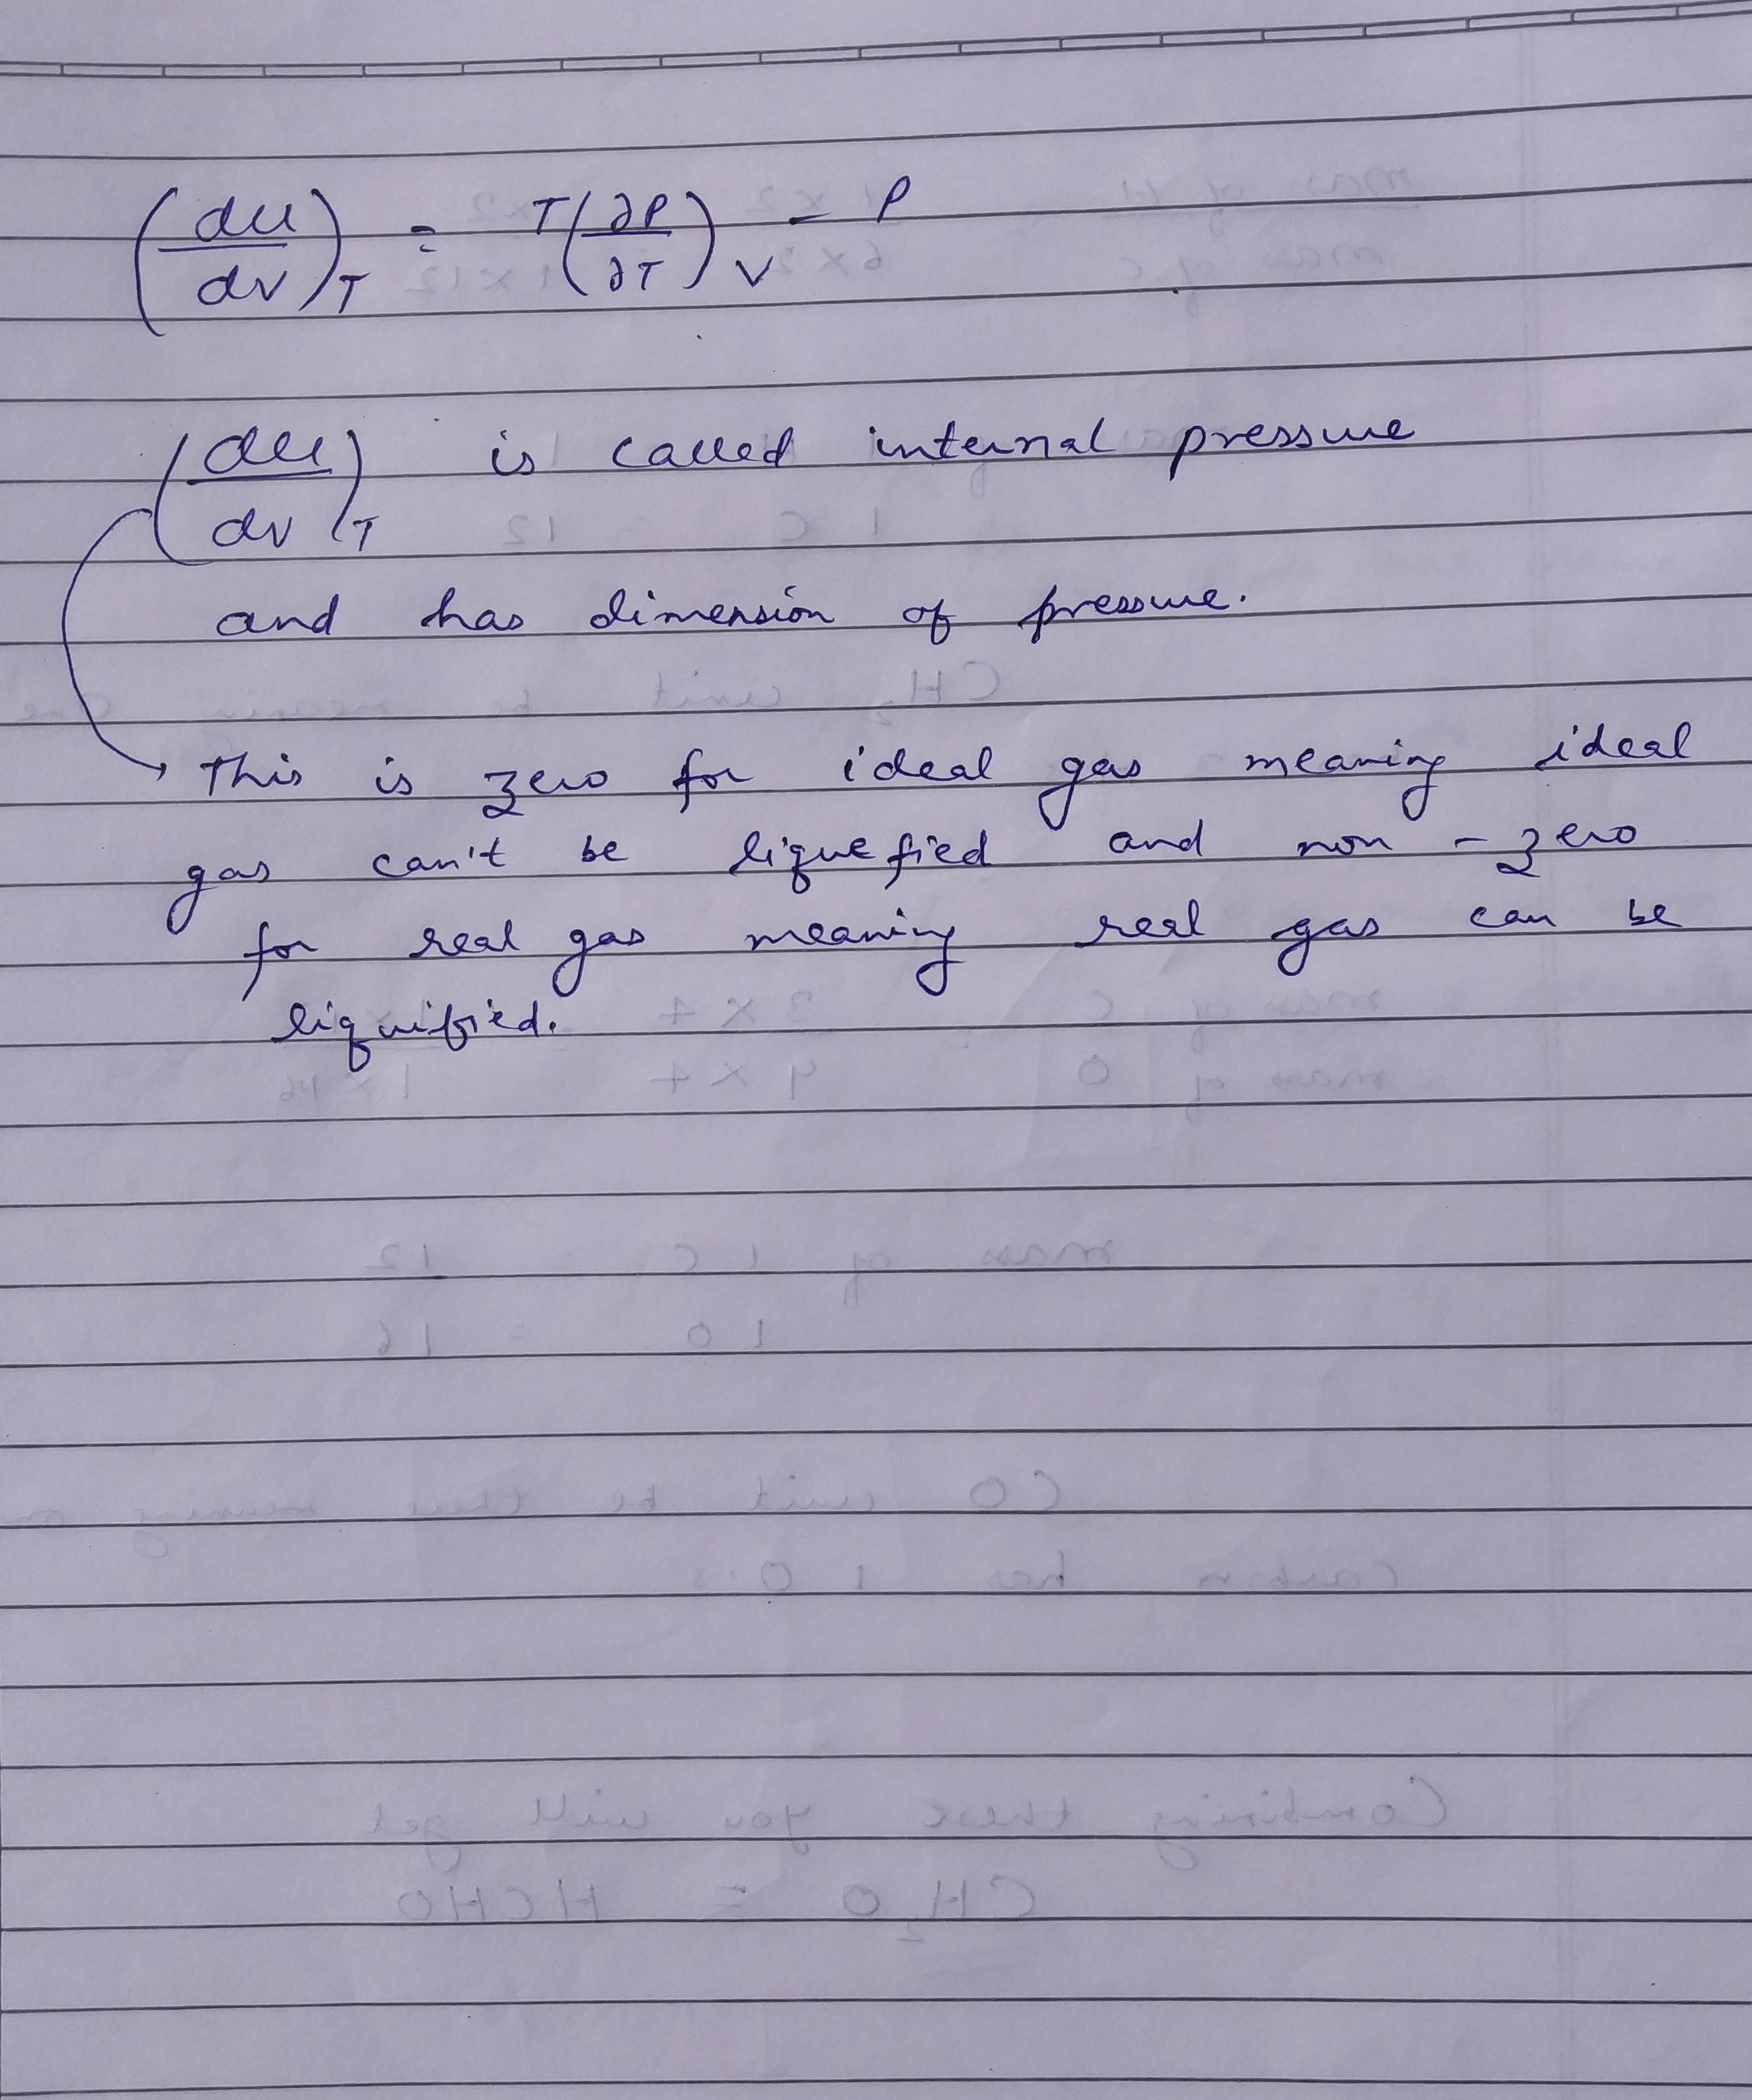 (du/dv)T = T(∂P/∂T)V - P
(du/dv)T is called internal pressure
and has dimension of pressure.
This is zero for ideal gas meaning ideal
gas can't be liquefied and non-zero
for real gas meaning real gas can be
liquified.